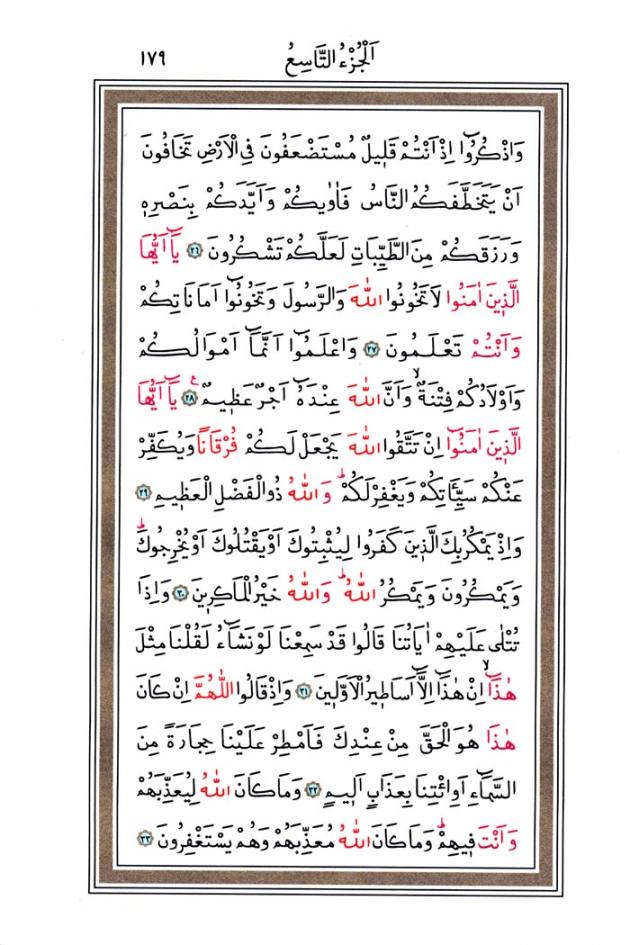 اَلْجُزْءُ التَّاسِعُ ١٧٩
وَاذْكُرُٓوا اِذْ اَنْتُمْ قَلٖيلٌ مُسْتَضْعَفُونَ فِي الْاَرْضِ تَخَافُونَ
اَنْ يَتَخَطَّفَكُمُ النَّاسُ فَاٰوٰيكُمْ وَاَيَّدَكُمْ بِنَصْرِهٖ
وَرَزَقَكُمْ مِنَ الطَّيِّبَاتِ لَعَلَّكُمْ تَشْكُرُونَ ﴿٢٦﴾ يَٓا اَيُّهَا
الَّذٖينَ اٰمَنُوا لَا تَخُونُوا اللّٰهَ وَالرَّسُولَ وَتَخُونُٓوا اَمَانَاتِكُمْ
وَاَنْتُمْ تَعْلَمُونَ ﴿٢٧﴾ وَاعْلَمُٓوا اَنَّمَٓا اَمْوَالُكُمْ
وَاَوْلَادُكُمْ فِتْنَةٌۙ وَاَنَّ اللّٰهَ عِنْدَهُٓ اَجْرٌ عَظٖيمٌ ﴿٢٨﴾ يَٓا اَيُّهَا
الَّذٖينَ اٰمَنُٓوا اِنْ تَتَّقُوا اللّٰهَ يَجْعَلْ لَكُمْ فُرْقَانًا وَيُكَفِّرْ
عَنْكُمْ سَيِّـَٔاتِكُمْ وَيَغْفِرْ لَكُمْؕ وَاللّٰهُ ذُو الْفَضْلِ الْعَظٖيمِ ﴿٢٩﴾
وَاِذْ يَمْكُرُ بِكَ الَّذٖينَ كَفَرُوا لِيُثْبِتُوكَ اَوْ يَقْتُلُوكَ اَوْ يُخْرِجُوكَؕ
وَيَمْكُرُونَ وَيَمْكُرُ اللّٰهُؕ وَاللّٰهُ خَيْرُ الْمَاكِرٖينَ ﴿٣٠﴾ وَاِذَا
تُتْلٰى عَلَيْهِمْ اٰيَاتُنَا قَالُوا قَدْ سَمِعْنَا لَوْ نَشَٓاءُ لَقُلْنَا مِثْلَ
هٰذَٓاۙ اِنْ هٰذَٓا اِلَّٓا اَسَاطٖيرُ الْاَوَّلٖينَ ﴿٣١﴾ وَاِذْ قَالُوا اللّٰهُمَّ اِنْ كَانَ
هٰذَا هُوَ الْحَقَّ مِنْ عِنْدِكَ فَاَمْطِرْ عَلَيْنَا حِجَارَةً مِنَ
السَّمَٓاءِ اَوِ ائْتِنَا بِعَذَابٍ اَلٖيمٍ ﴿٣٢﴾ وَمَا كَانَ اللّٰهُ لِيُعَذِّبَهُمْ
وَاَنْتَ فٖيهِمْؕ وَمَا كَانَ اللّٰهُ مُعَذِّبَهُمْ وَهُمْ يَسْتَغْفِرُونَ ﴿٣٣﴾